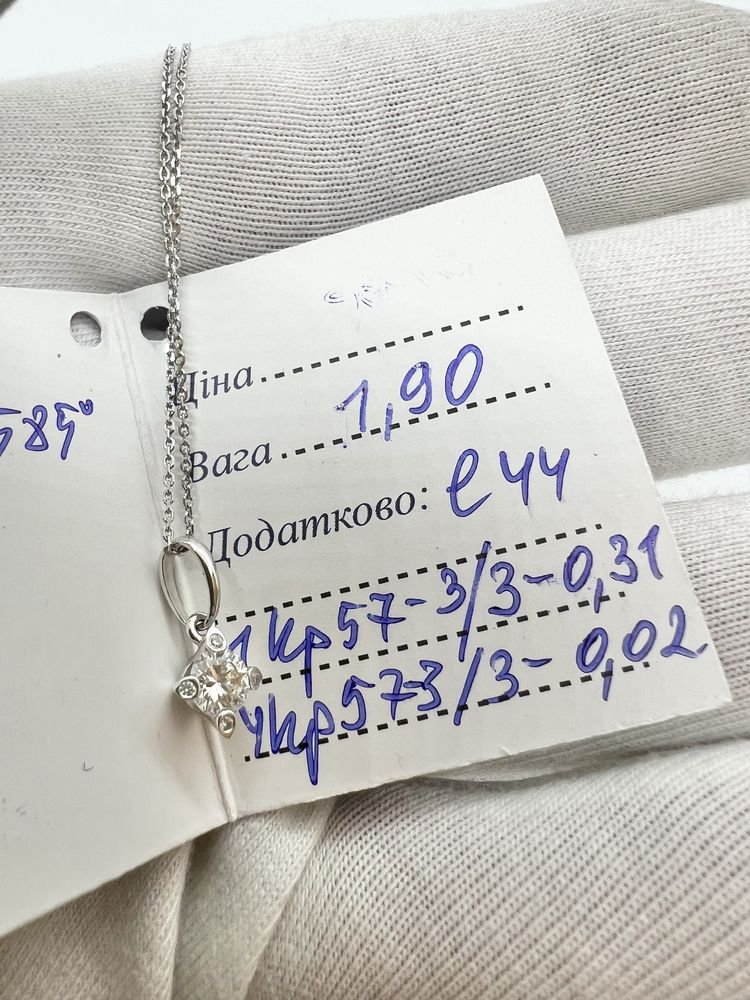 585°
Ціна
Вага 1,90
Додатково: е44
1кр57-3/3-0,31
4кр57-3/3-0,02